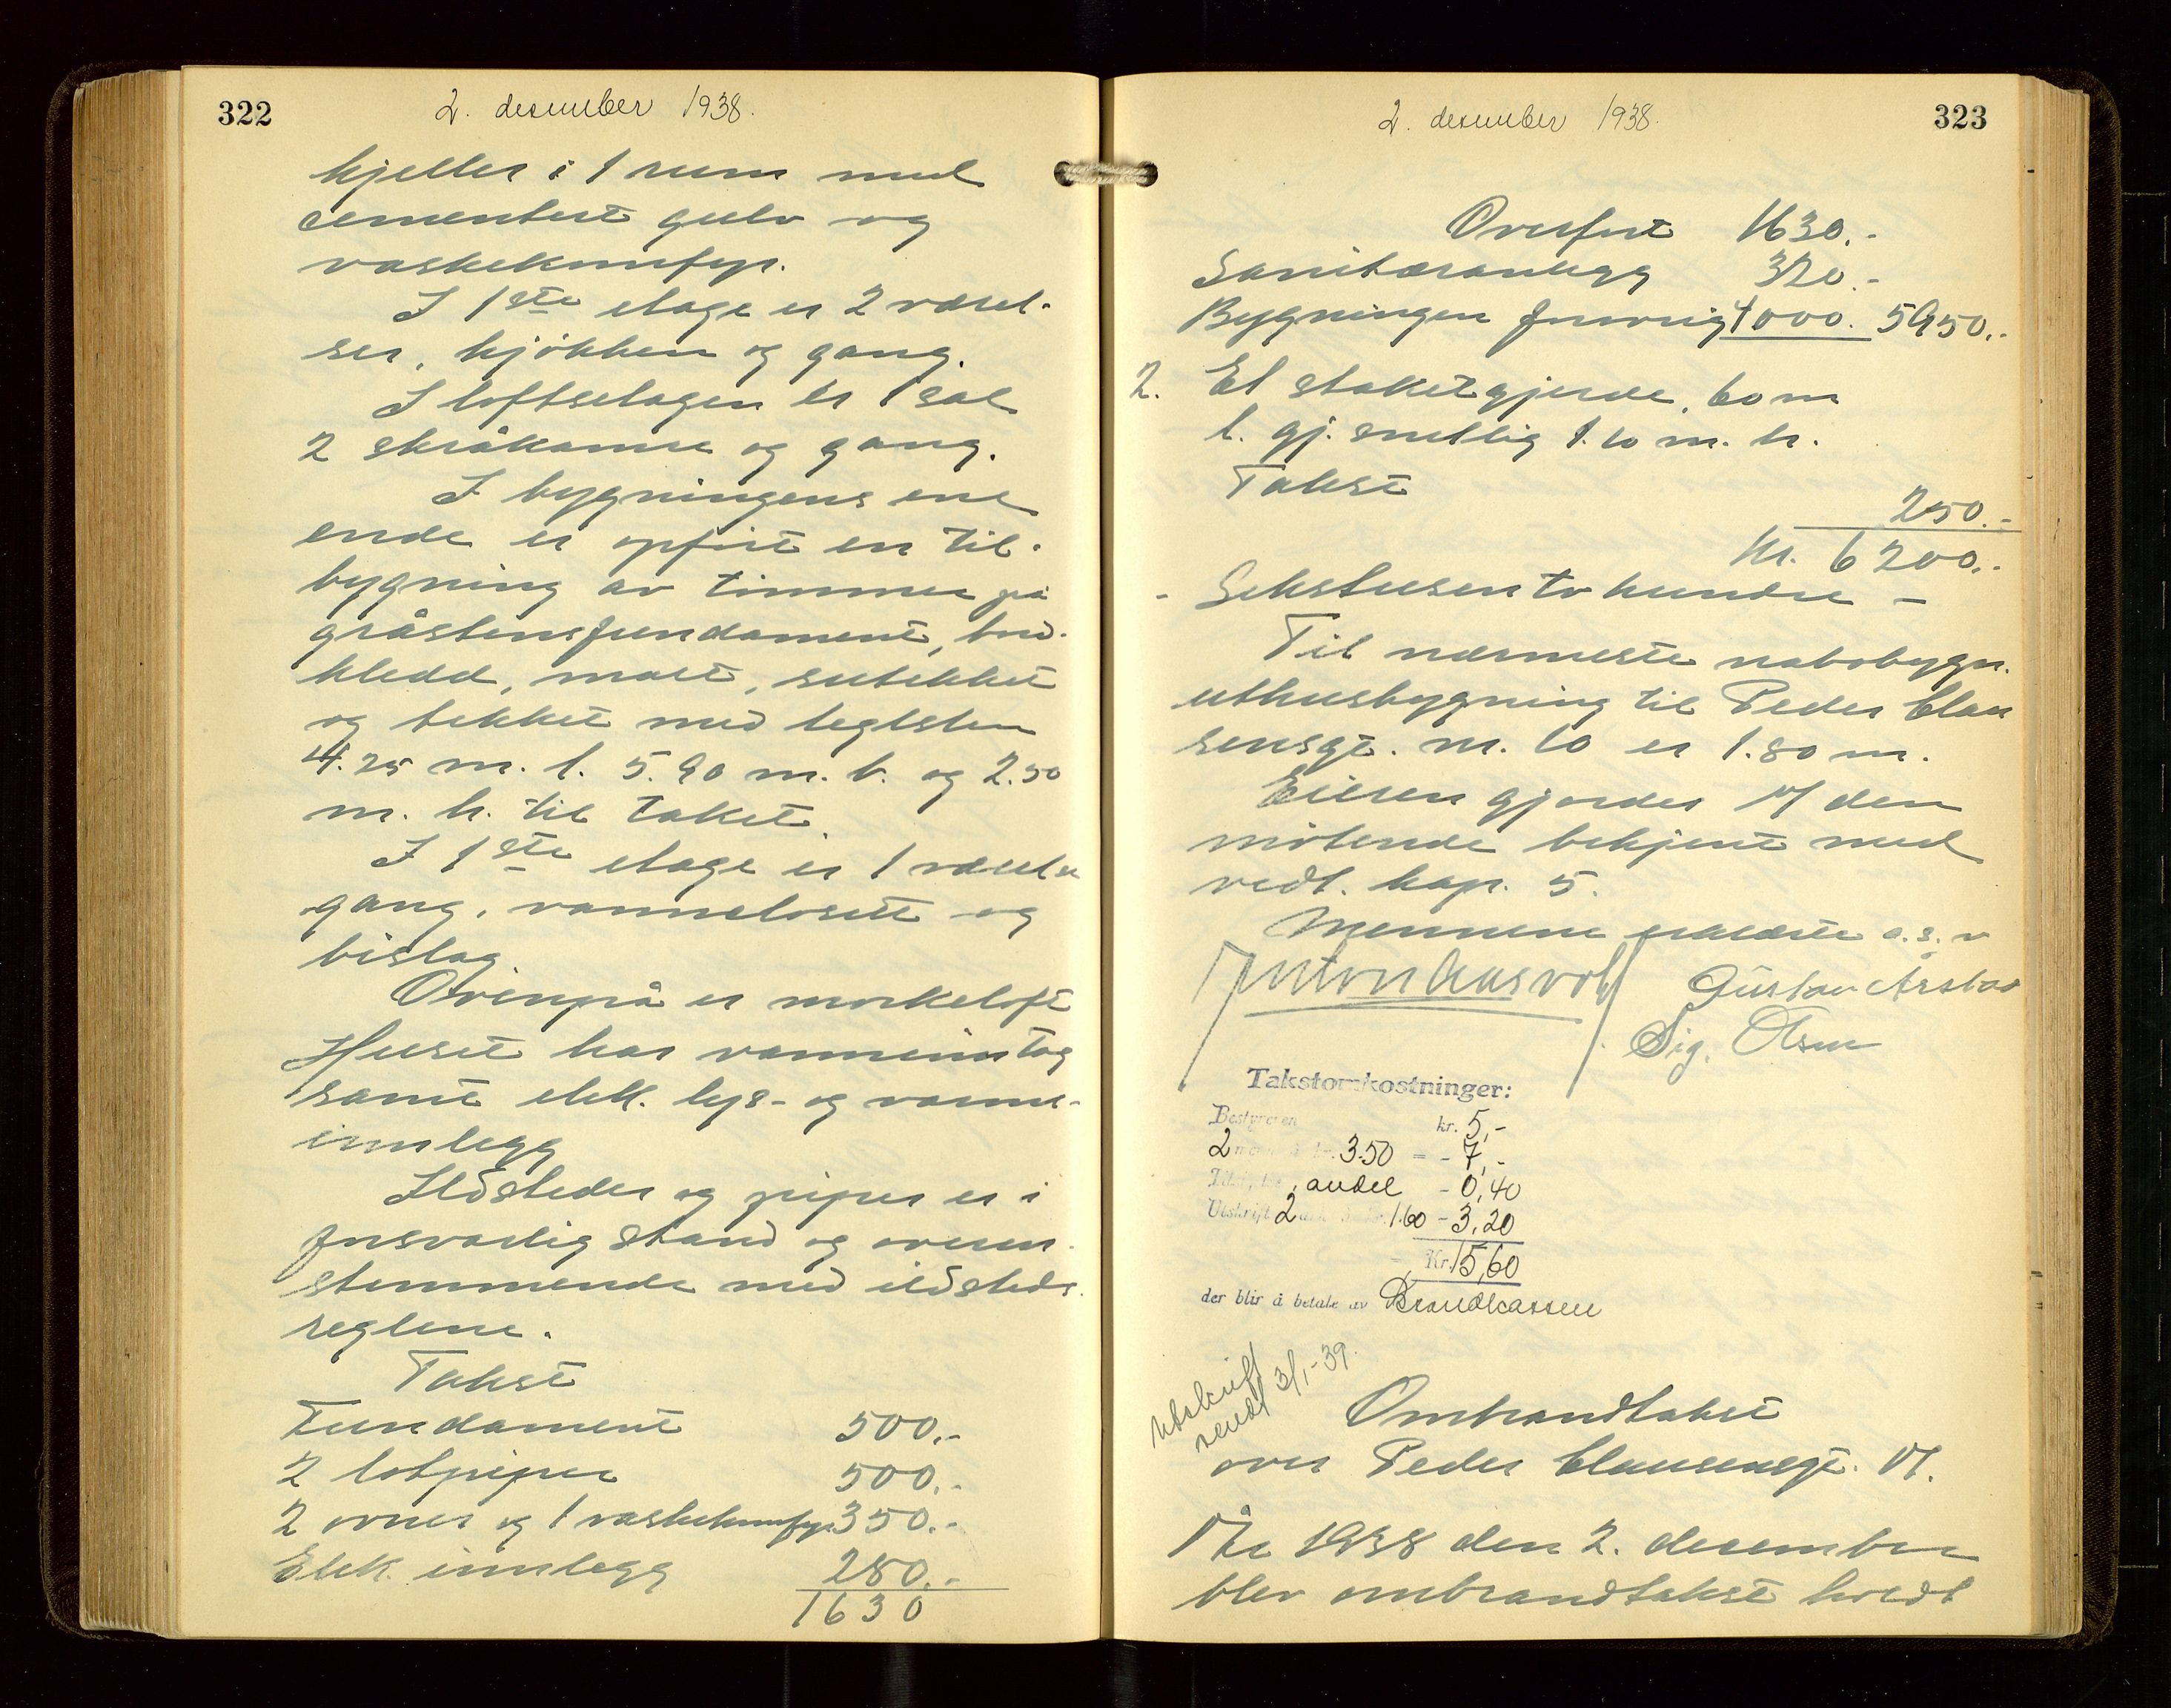 322
2. desember 1938.
kjeller i 1 rum med
sementert gulv og
vaskekumfyr.
I 1ste etage er 2 værel-
ser, kjøkken og gang.
I loftsetagen er 1 sal
2 skråkamre og gang.
I bygningens ene
ende er opført en til-
bygning av timmer på
gråstensfundament, bord-
kledd, malt, sutekket
og tekket med teglsten
4.25 m. l. 5.90 m. b. og 2.50
m. h. til taket.
I 1ste etage er 1 værelse
gang, vannclosett og
bislag
Ovenpå er mørkeloft
Huset har vanninntag
samt elek. lys- og varme-
innlegg
Ildsteder og piper er i
forsvarlig stand og overen-
stemmende med ildsteds-
reglene.
Takst
Fundament 500.-
2 løtpiper 500.-
2 ovner og 1 vaskekumfyr. 350.-
Elek. innlegg 280.-
1630
323
2. desember 1938.
Overført 1630.-
Sanitæranlegg 320.-
Bygningen forøvrig 4000. 5950.-
2. Et staketgjerde, 60 m
l. gj. snittlig 1.10 m. h.
Takst
250.-
Kr. 6200.-
- Sekstusentohundre -
Til nærmeste nabobygn.
uthusbygning til Peder Clau
sensgt. nr. 10 er 1.80 m.
Eieren gjordes v/ den
møtende bekjent med
vedt. kap. 5.
Mennene erklærte a. s. v
Anton Aasvoll
Gustav Årstad
Sig. Olsen
Takstomkostninger:
Bestyreren kr. 5,-
2 menn à kr. 3.50 = - 7,-
andel - 0,40
Utskrift 2 ark à kr. 1.60 - 3,20
Kr. 15,60
der blir å betale av Brandkassen
Utskrift
sendt 3/1-39.
Ombrandtakst
over Peder Clausensgt. 17.
År 1938 den 2. desember
blev ombrandtakst holdt